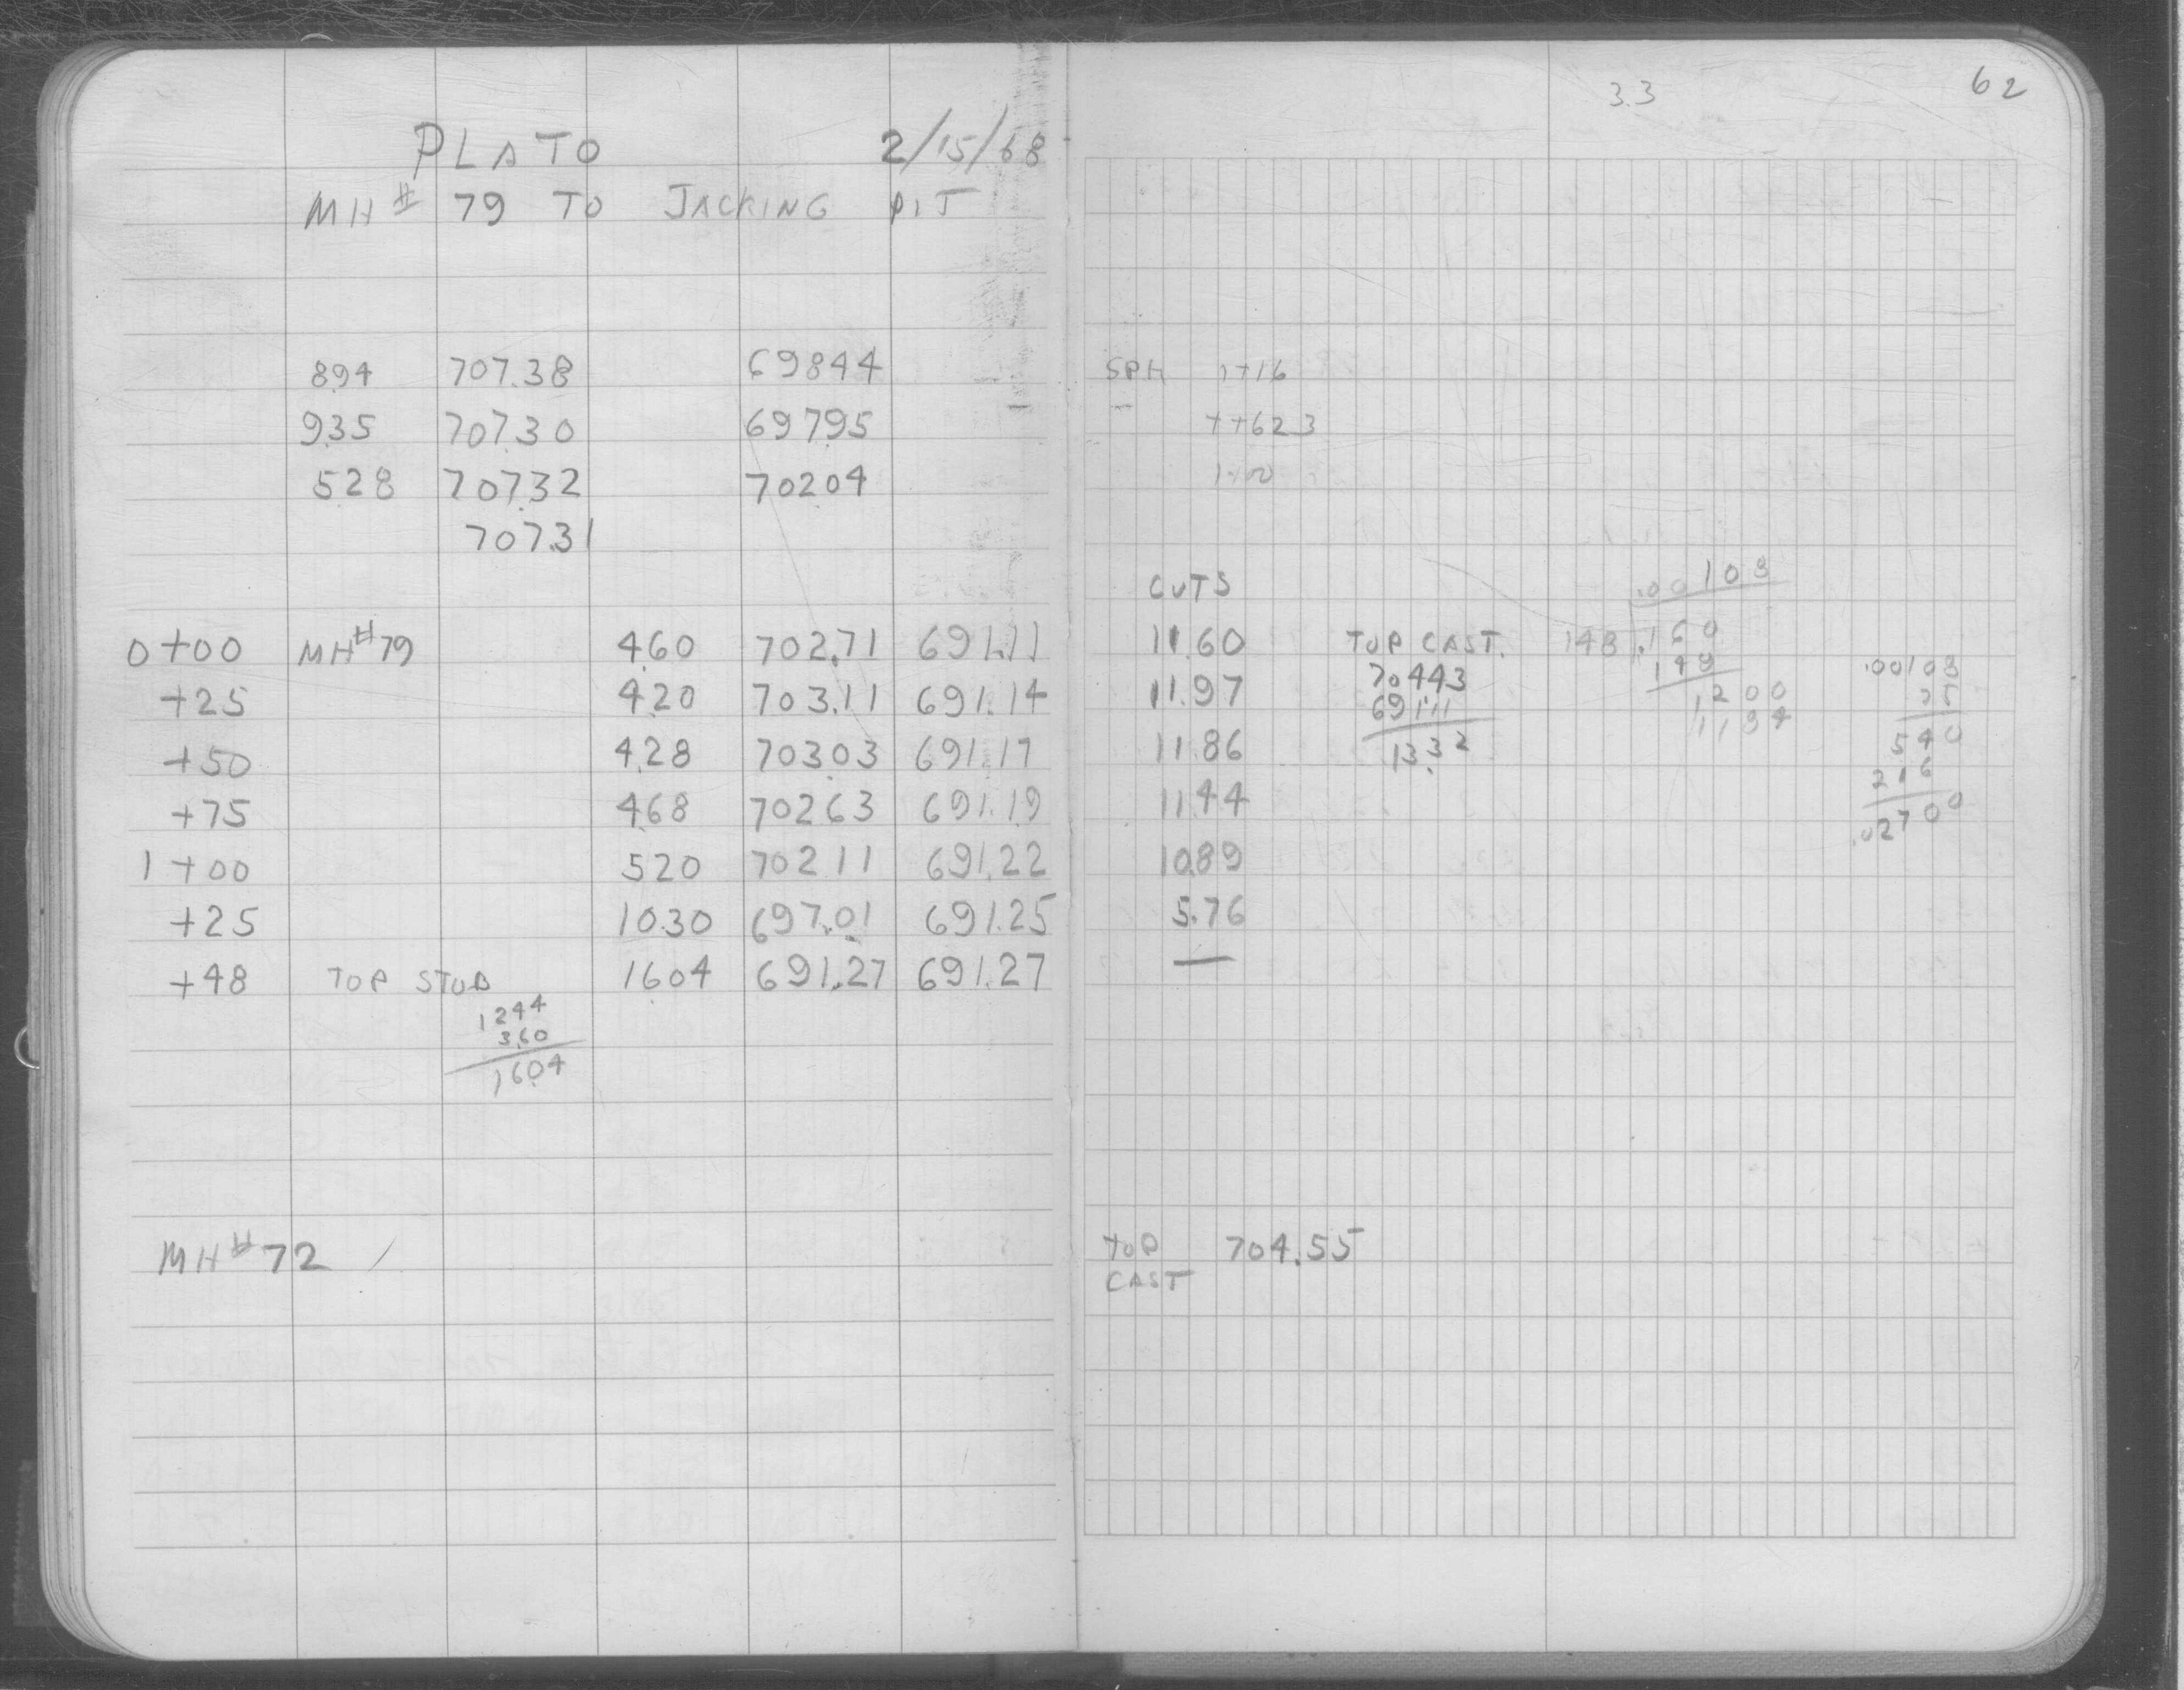 PLATO 2/15/68
MH# 79 TO JACKING PIT
8.94 707.38 69844
9.35 707.30 697.95
5.28 707.32 702.04
707.31
0+00 MH#79 4.60 702.71 691.11
+25 4.20 703.11 691.14
+50 4.28 703.03 691.17
+75 4.68 702.63 691.19
1+00 5.20 702.11 691.22
+25 10.30 697.01 691.25
+48 TOP STUB 16.04 691.27 691.27
1244
3.60
16.04
MH#72
3.3 62
SPH 1+16
++623
1+00
CUTS
11.60
11.97
11.86
11.44
10.89
5.76
—
TOP CAST.
704.43
691.11
13.32
.00108
148 .160
148
1200
1184
.00108
25
540
216
.02700
TOP 704.55
CAST